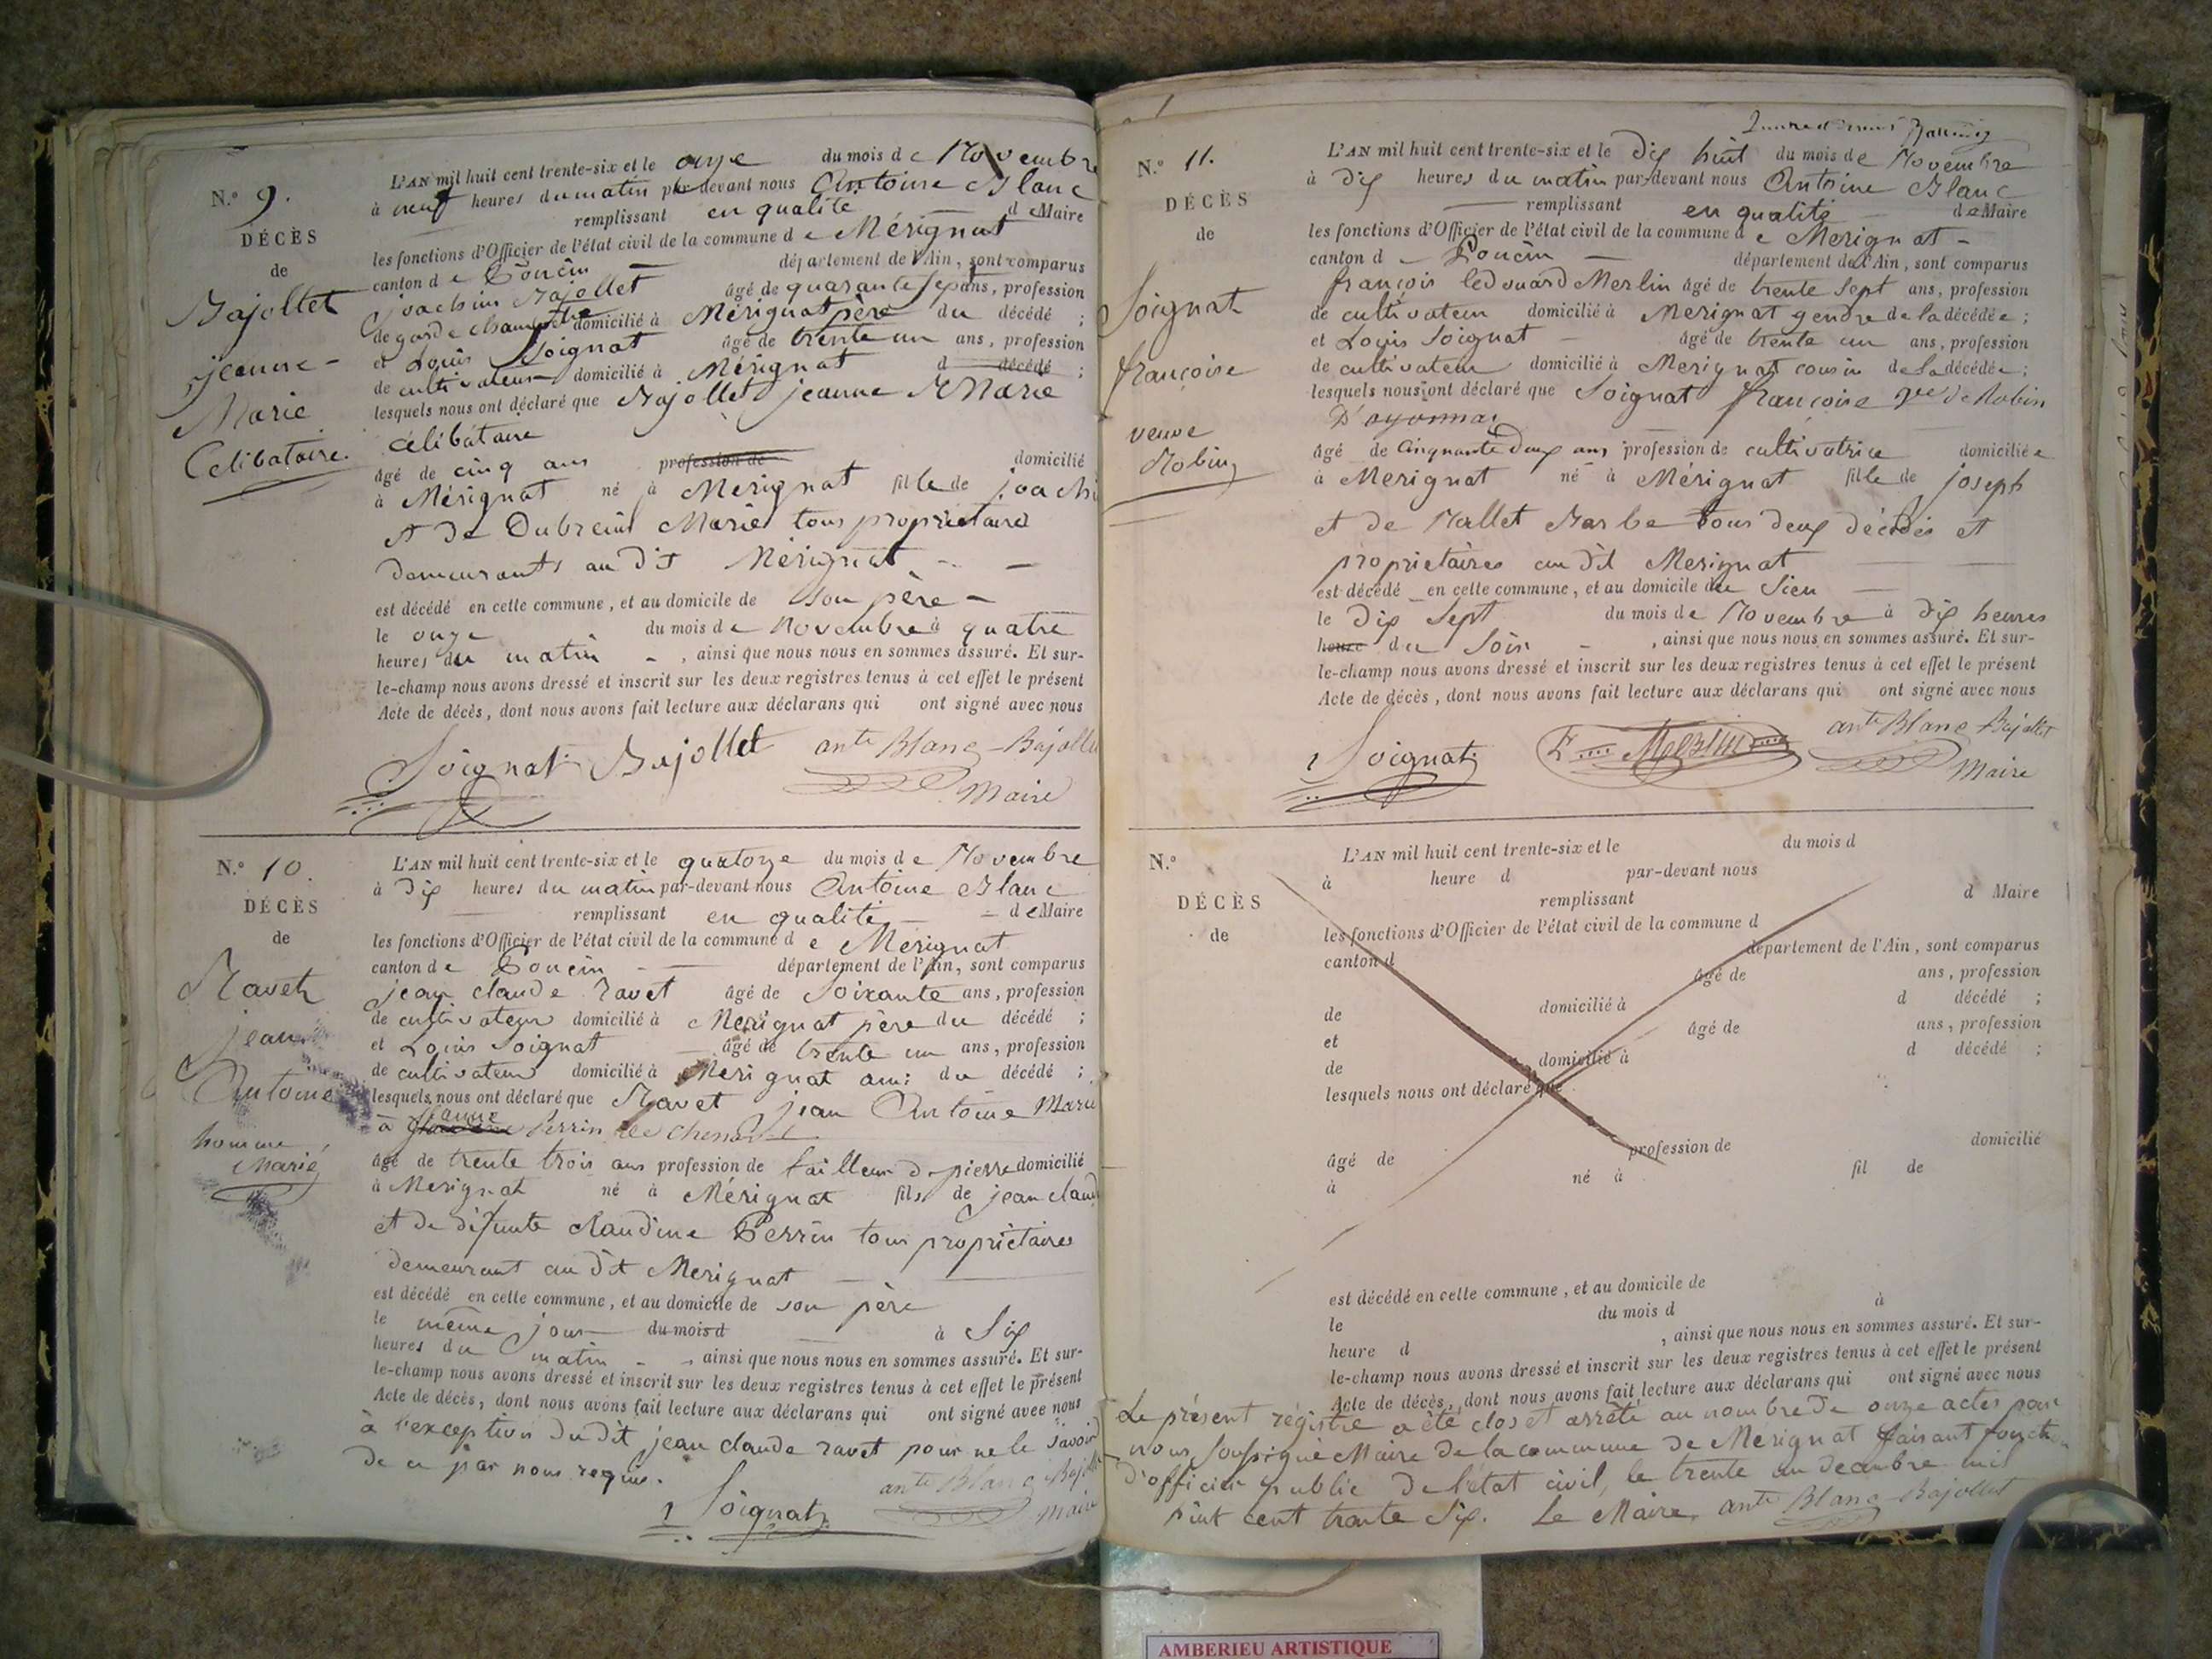 N.° 9.
DÉCÈS
de
Bajollet
jeanne-
Marie
Célibataire.
L'AN mil huit cent trente-six et le onze du mois de Novembre
à neuf heures du matin par devant nous Antoine Blanc
remplissant en qualité de Maire
les fonctions d'Officier de l'état civil de la commune de Mérignat
canton de Poncin département de l'Ain, sont comparus
joachim Bajollet âgé de quarante sept ans, profession
de garde champetre domicilié à Mérignat père du décédé ;
et Louis Soignat âgé de trente un ans, profession
de cultivateur domicilié à Mérignat d décédé ;
lesquels nous ont déclaré que Bajollet jeanne Marie
célibataire
âgé de cinq ans profession de domicilié
à Mérignat né à Mérignat fille de joachi
et de Dubreuil Marie tous propriétaires
demeurants au dit Mérignat
est décédé en cette commune, et au domicile de son père
le onze du mois de Novembre à quatre
heures du matin , ainsi que nous nous en sommes assuré. Et sur-
le-champ nous avons dressé et inscrit sur les deux registres tenus à cet effet le présent
Acte de décès, dont nous avons fait lecture aux déclarans qui ont signé avec nous
Soignat Bajollet ante Blanc-Bajolle
Maire
N.° 10.
DÉCÈS
de
Ravet
jean
Antoine
homme
Marié
L'AN mil huit cent trente-six et le quatorze du mois de Novembre
à dix heures du matin par-devant nous Antoine Blanc
remplissant en qualité de Maire
les fonctions d'Officier de l'état civil de la commune de Mérignat
canton de Poncin département de l'Ain, sont comparus
jean claude ravet âgé de Soixante ans, profession
de cultivateur domicilié à Mérignat père du décédé ;
et Louis Soignat âgé de trente un ans, profession
de cultivateur domicilié à Mérignat ami du décédé ;
lesquels nous ont déclaré que Ravet jean Antoine Marié
à Perrin
âgé de trente trois ans profession de tailleur de pierre domicilié
à Mérignat né à Mérignat fils de jean claud
et de défunte claudine Perrin tous propriétaires
demeurant au dit Mérignat
est décédé en cette commune, et au domicile de son père
le même jour du mois d à Six
heures du matin , ainsi que nous nous en sommes assuré. Et sur-
le-champ nous avons dressé et inscrit sur les deux registres tenus à cet effet le présent
Acte de décès, dont nous avons fait lecture aux déclarans qui ont signé avec nous
à l'exception du dit jean claude ravet pour ne le savoir
de ce par nous requis.
Soignat ante Blanc Bajolle
Maire
N.° 11.
DÉCÈS
de
Soignat
françoise
veuve
Robin
L'AN mil huit cent trente-six et le dix huit du mois de Novembre
à dix heures du matin par-devant nous Antoine Blanc
remplissant en qualité de Maire
les fonctions d'Officier de l'état civil de la commune de Merignat
canton d Poncin département de l'Ain, sont comparus
françois ledouard Merlin âgé de trente sept ans, profession
de cultivateur domicilié à Merignat gendre de la décédée ;
et Louis Soignat âgé de trente un ans, profession
de cultivateur domicilié à Merignat cousin de la décédée ;
lesquels nous ont déclaré que Soignat françoise vve de Robin
D'oyonnax
âgé de cinquante deux ans profession de cultivatrice domiciliée
à Merignat né à Mérignat fille de joseph
et de Mallet Barbe tous deux décédés et
propriétaires au dit Merignat
est décédé en cette commune, et au domicile du sien
le dix Sept du mois de Novembre à dix heures
heure du Soir , ainsi que nous nous en sommes assuré. Et sur-
le-champ nous avons dressé et inscrit sur les deux registres tenus à cet effet le présent
Acte de décès, dont nous avons fait lecture aux déclarans qui ont signé avec nous
Soignat Merlin ante Blanc-Bajollet
Maire
N.°
DÉCÈS
de
L'AN mil huit cent trente-six et le du mois d
à heure d par-devant nous
remplissant d Maire
les fonctions d'Officier de l'état civil de la commune d
canton d département de l'Ain, sont comparus
âgé de ans, profession
de domicilié à d décédé ;
et âgé de ans, profession
de domicilié à d décédé ;
lesquels nous ont déclaré que
âgé de profession de domicilié
à né à fil de
est décédé en cette commune, et au domicile de
le du mois d à
heure d , ainsi que nous nous en sommes assuré. Et sur-
le-champ nous avons dressé et inscrit sur les deux registres tenus à cet effet le présent
Acte de décès, dont nous avons fait lecture aux déclarans qui ont signé avec nous
Le présent régistre a été clos et arrêté au nombre de onze actes par
nous soussigné Maire de la commune de Merignat faisant fonction
d'officier public de l'état civil, le trente un decembre mil
huit cent trente Six. Le Maire ante Blanc-Bajollet
AMBERIEU ARTISTIQUE